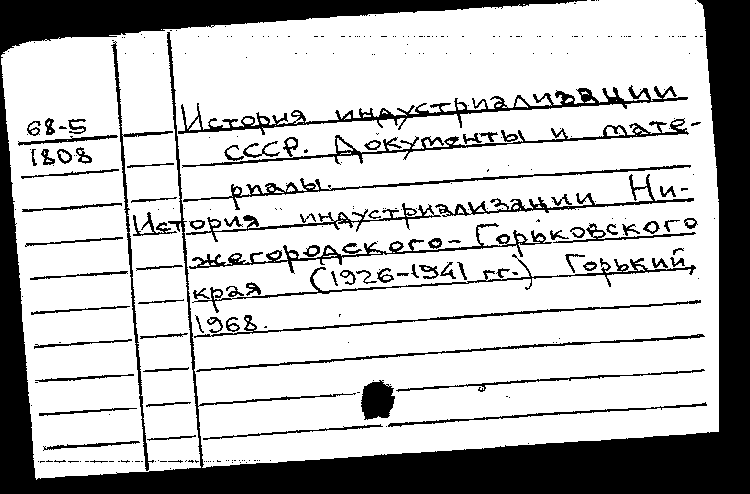 68-5
1808
История индустриализации
СССР. Документы и мате-
риалы.
История индустриализации Ни-
жегородского-Горьковского
края (1926-1941 гг.) Горький,
1968.